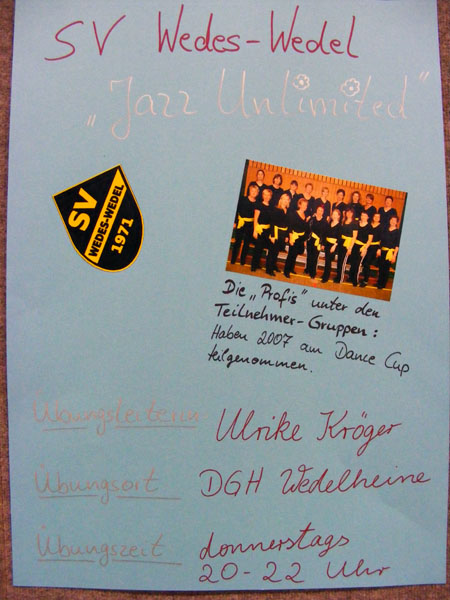 SV Wedes-Wedel
„Jazz Unlimited"
SV
WEDES-WEDEL
1971
Die „Profis" unter den
Teilnehmer-Gruppen:
Haben 2007 am Dance Cup
teilgenommen.
Übungsleiterin Ulrike Kröger
Übungsort DGH Wedelheine
Übungszeit donnerstags
20-22 Uhr